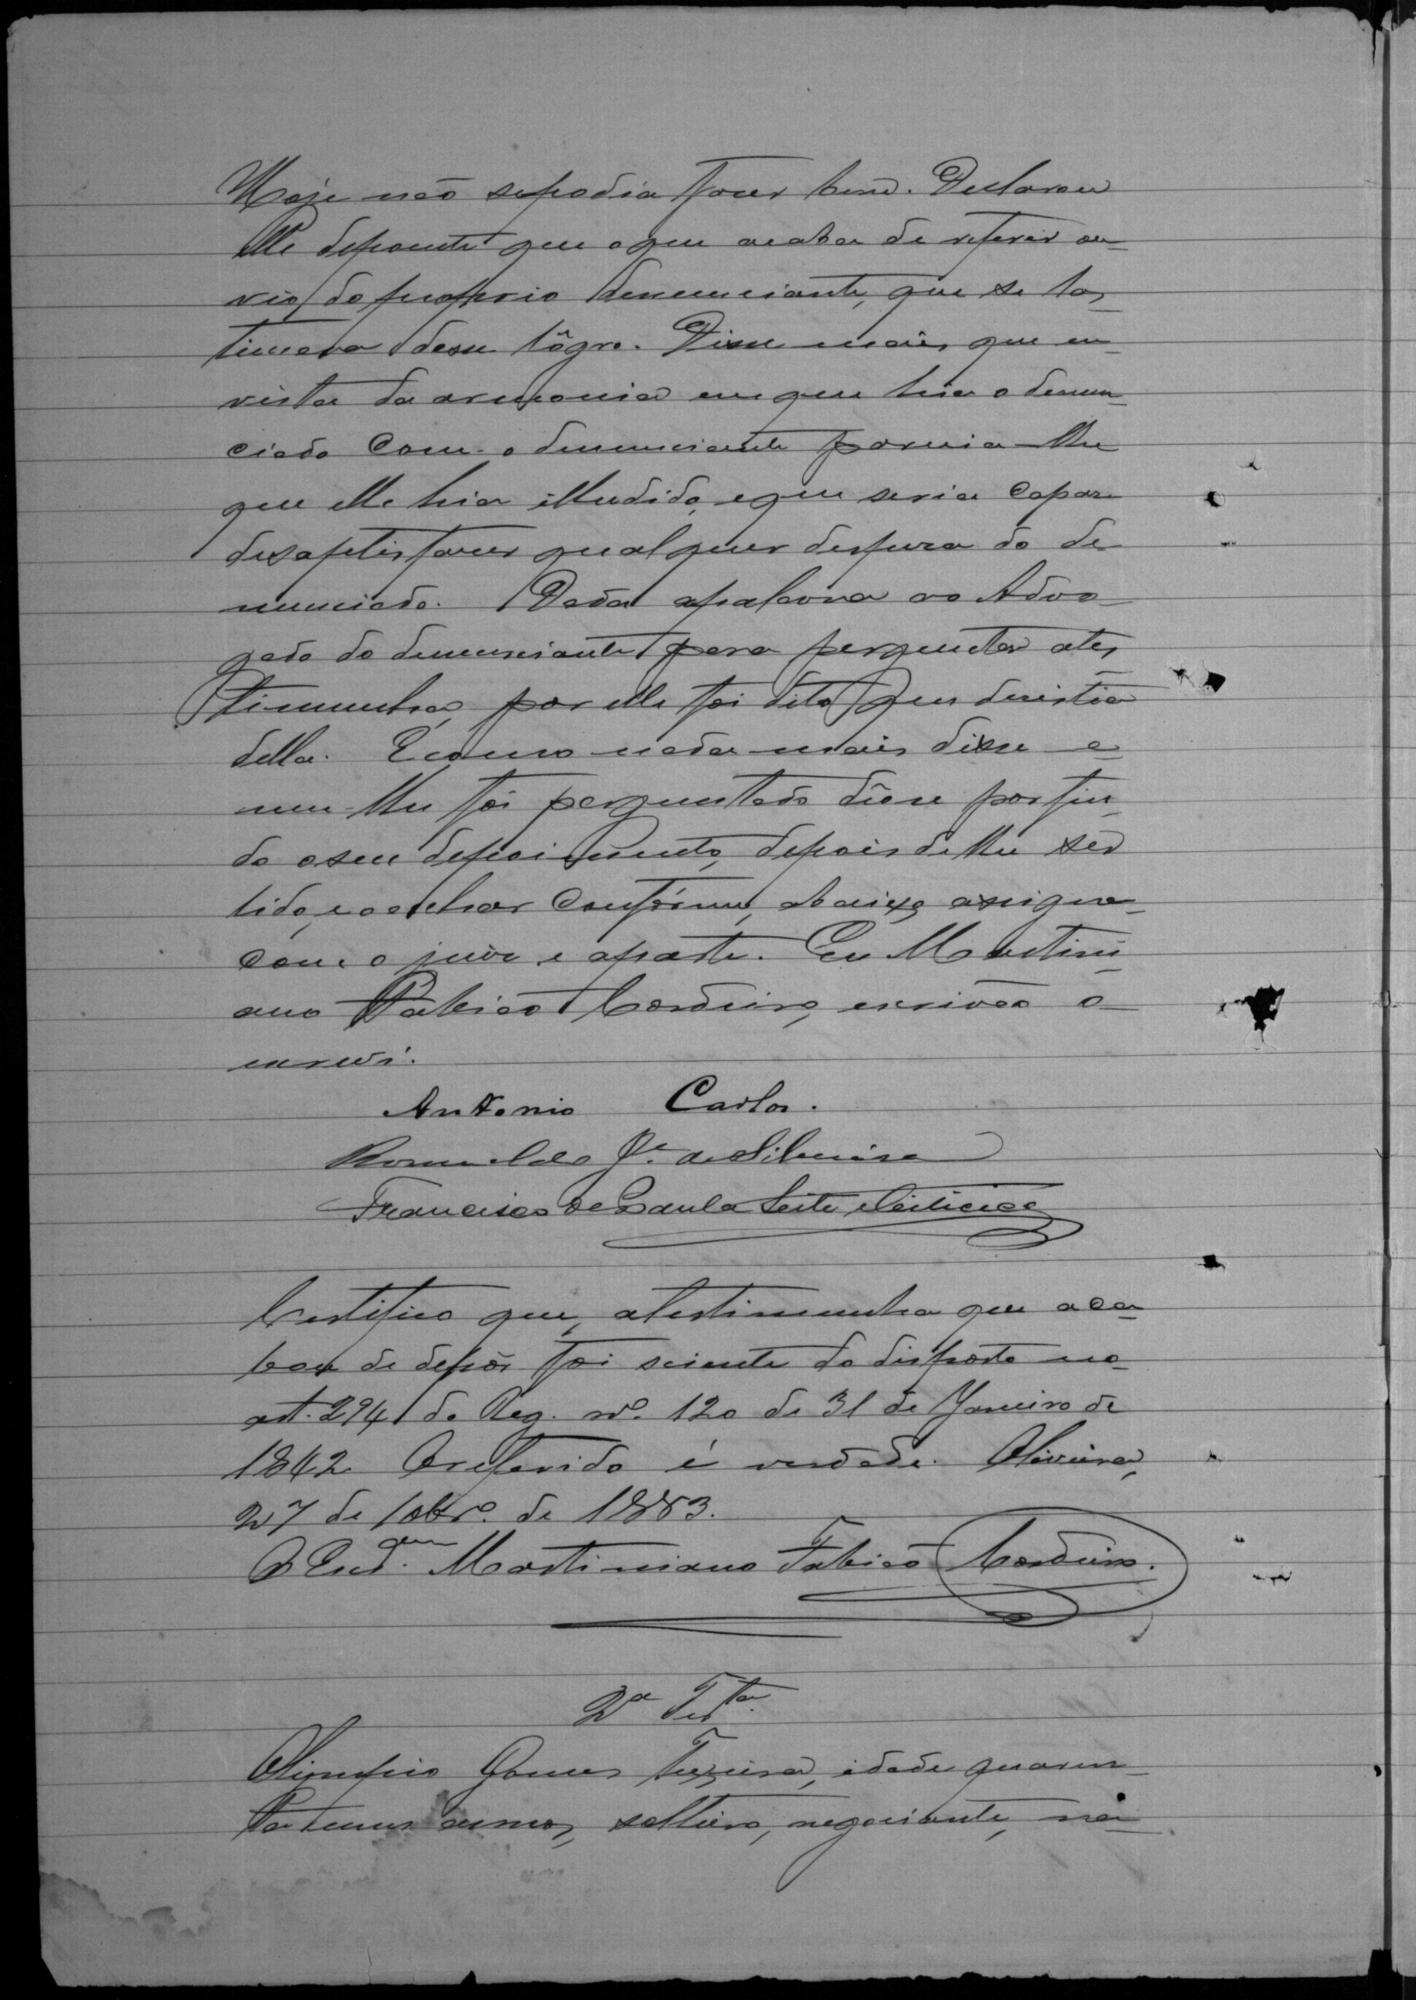 Hoje não se podia fazer bem. Declarou
elle depoente que o que acaba de referir ou-
vio do proprio denunciante, que se las-
timava desse lôgro. Disse mais que em
vista da armonia em que hia o denun-
ciado com o denunciante paricia-lhe
que elle hia illudido, e que seria capaz
de satisfazer qualquer despeza do de-
nunciado. Dada a palavra ao Advo-
gado do denunciante para perguntar a tes-
timunha, por elle foi dito que desistia
della. E como nada mais disse e
nem lhe foi perguntado dêose por fin-
do o seu depoimento, depois de lhe ser
lido, e o achar confórme, abaixo assigna
com o juiz e a parte. Eu Martini-
ano Fabião Cordeiro, escrivão o
escrevi.
Antonio Carlos.
Romualdo Je. de Silveira
Francisco de Paula Leite e Oiticica
Certifico que, a testimunha que aca-
bou de depôr foi sciente do disposto no
art. 294 do Reg. nº. 120 de 31 de Janeiro de
1842 O referido é verdade. Oliveira,
27 de 8br.º de 1883.
O Martiniano Fabião Cordeiro.
2ª Testa.
Olimpio Gomes, idade quaren-
ta annos, solteiro, negociante, na-